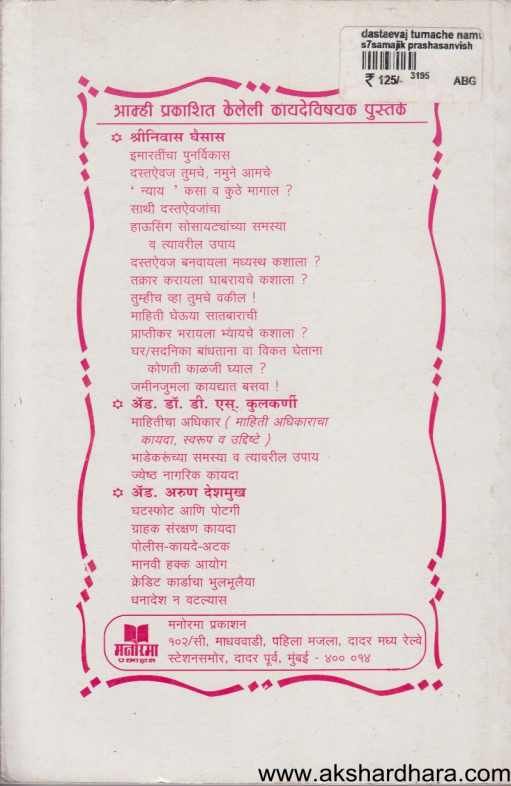 dastaevaj tumache namu
s7samajik prashasanvish
₹ 125/- 3195 ABG
आम्ही प्रकाशित केलेली कायदेविषयक पुस्तके
श्रीनिवास घैसास
इमारतींचा पुनर्विकास
दस्तऐवज तुमचे, नमुने आमचे
' न्याय ' कसा व कुठे मागाल ?
साथी दस्तऐवजांचा
हाऊसिंग सोसायट्यांच्या समस्या
व त्यावरील उपाय
दस्तऐवज बनवायला मध्यस्थ कशाला ?
तक्रार करायला घाबरायचे कशाला ?
तुम्हीच व्हा तुमचे वकील !
माहिती घेऊया सातबाराची
प्राप्तीकर भरायला भ्यायचे कशाला ?
घर/सदनिका बांधताना वा विकत घेताना
कोणती काळजी घ्याल ?
जमीनजुमला कायद्यात बसवा !
ॲड. डॉ. डी. एस्. कुलकर्णी
माहितीचा अधिकार ( माहिती अधिकाराचा
कायदा, स्वरूप व उद्दिष्टे )
भाडेकरूंच्या समस्या व त्यावरील उपाय
ज्येष्ठ नागरिक कायदा
ॲड. अरुण देशमुख
घटस्फोट आणि पोटगी
ग्राहक संरक्षण कायदा
पोलीस-कायदे-अटक
मानवी हक्क आयोग
क्रेडिट कार्डाचा भुलभूलैया
धनादेश न वटल्यास
मनोरमा प्रकाशन
१०२/सी, माधववाडी, पहिला मजला, दादर मध्य रेल्वे
स्टेशनसमोर, दादर पूर्व, मुंबई - ४०० ०१४
मनोरमा
प्रकाशन
www.akshardhara.com